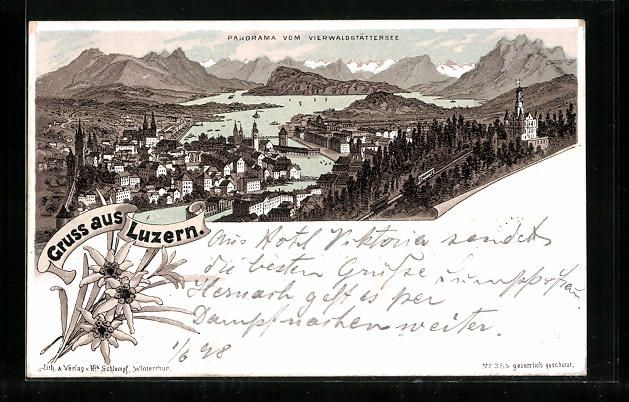 PANORAMA VOM VIERWALDSTÄTTERSEE
Gruss aus Luzern.
Aus Hotel Viktoria sendet
die besten Grüsse
Hernach geht es per
Dampfnachen weiter.
1/6 98
Lith. & Verlag v. Hch Schlumpf, Winterthur.
No 355 gesetzlich geschützt.